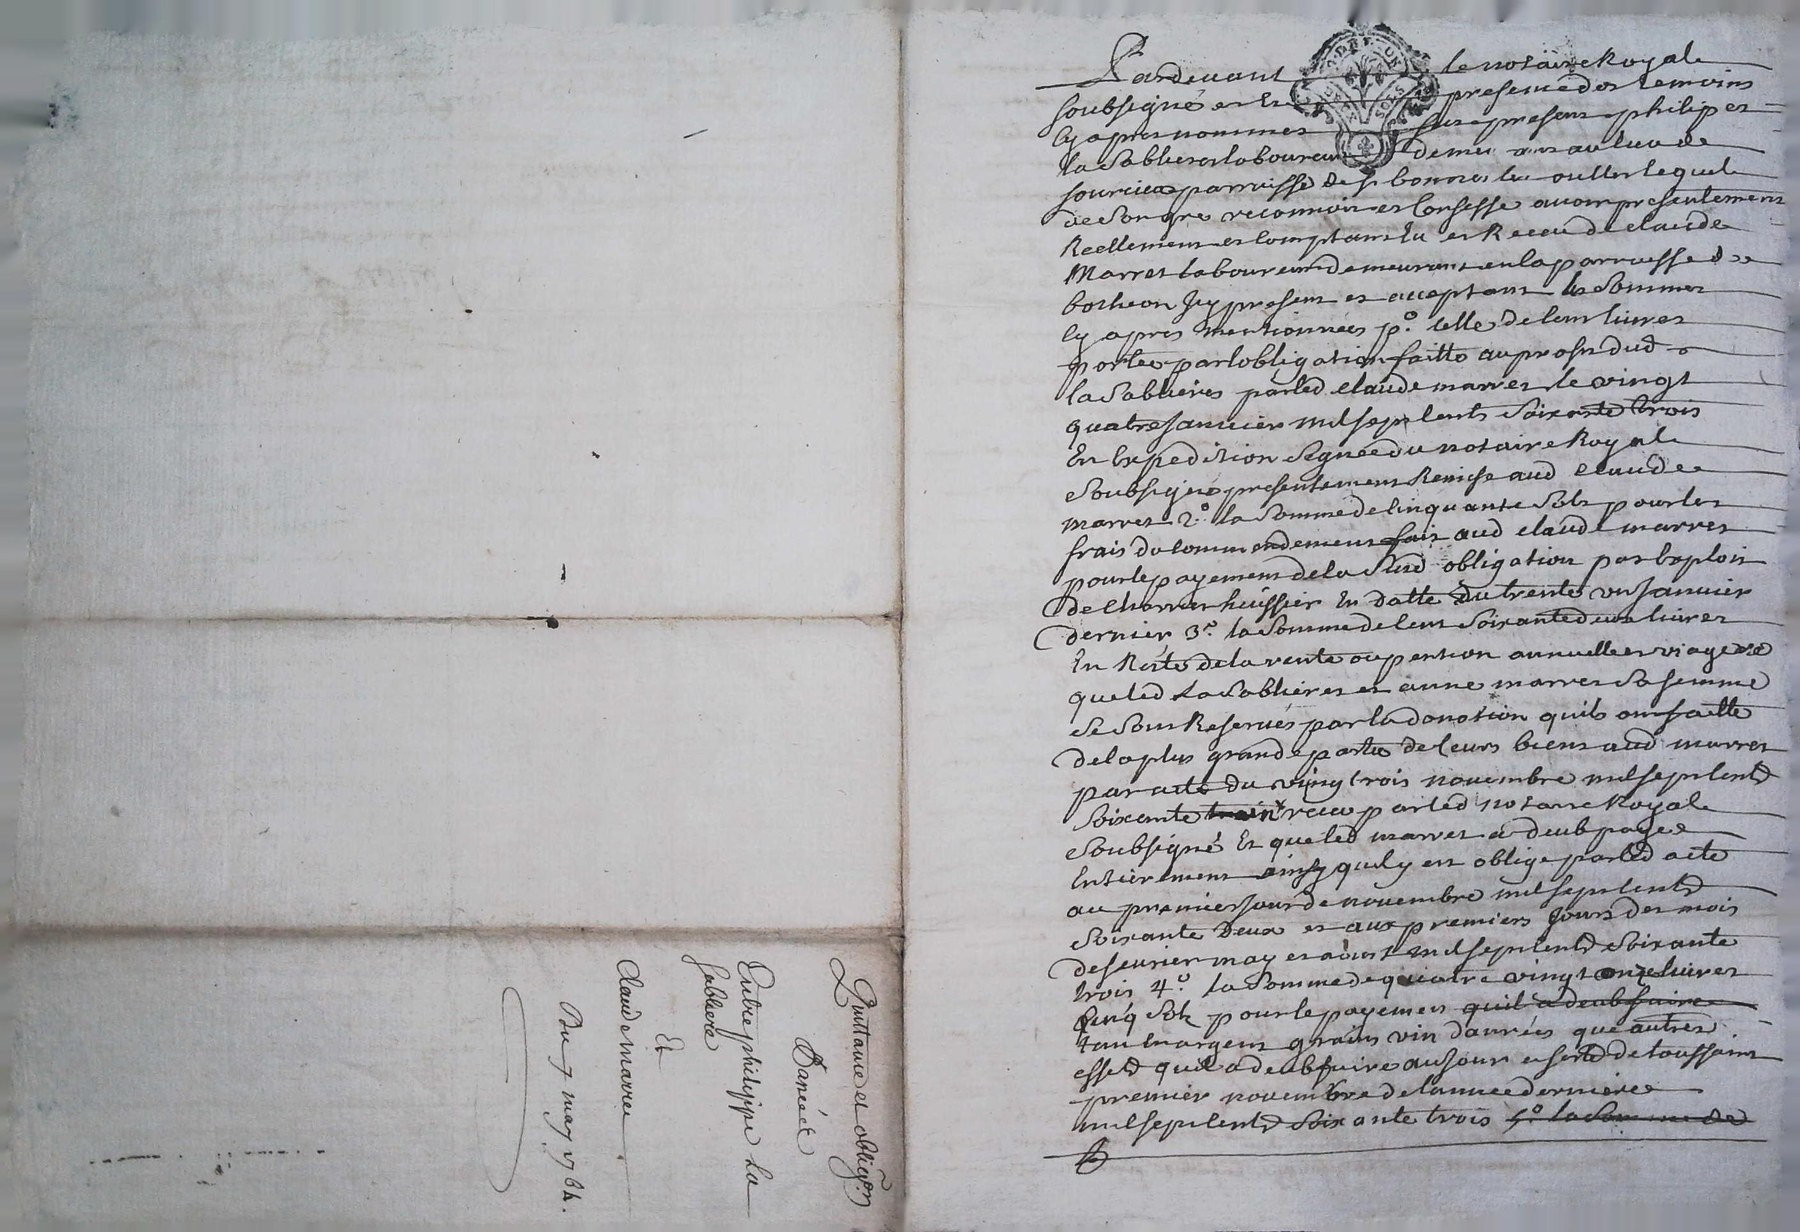 Pardevant le notaire Royal
soubsigné et En presence des temoins
cy apres nommes fut present philipes
la Sablieres laboureur demeurant au lieu de
parroisse de St bonnet les oulles lequel
de son gré reconnoit et Confesse avoir presentement
Reellement et Comptant Eu et Receu de claude
Marret laboureur demeurant en la parroisse de
botheon Icy present et acceptant les Sommes
Cy apres mentionnées po. celle de Cent livres
portée par lobligation faitte au profit dud
la Sablieres par led claude marret le vingt
quatre Janvier mil sept Cents Soixante trois
En Expedition Signée du notaire Royal
Soubsigné presentement Remise aud Claude
marret 2o. la Somme de Cinquante Sols pour les
frais du Commandement fait aud claude marret
pour le payement de la Susd obligation par Exploit
de huissier En datte du trente un Janvier
dernier 3o. la Somme de Cent Soixante deux livres
En Reste de la rente ou pention annuelle et viagere
que led La Sablieres et anne marret Sa femme
Se Sont Reservés par la donation quils ont faitte
de la plus grande partie de leurs biens aud marret
par acte du vingt trois novembre mil sept Cents
Soixante receu par led notaire Royal
Soubsigné Et que led marret a deub payer
Entierement ainsy quil y est obligé par led acte
au premier Jour de novembre mil sept Cents
Soixante Deux et aux premiers Jours des mois
de fevrier may et aoust mil sept Cents Soixante
trois 4o. la Somme de quatre vingt onze livres
Cinq Sols pour le payement quil a deub faire
tant En argent grains vin danrées que autres
effets quil a deub faire au Jour et feste de toussaint
premier novembre de lannee derniere
mil sept Cents Soixante trois 5o. la Somme de
Quittance et obligon
Danéét
Entre philippe La
Sabliere
Et
Claude marret
Du 7 may 1764.